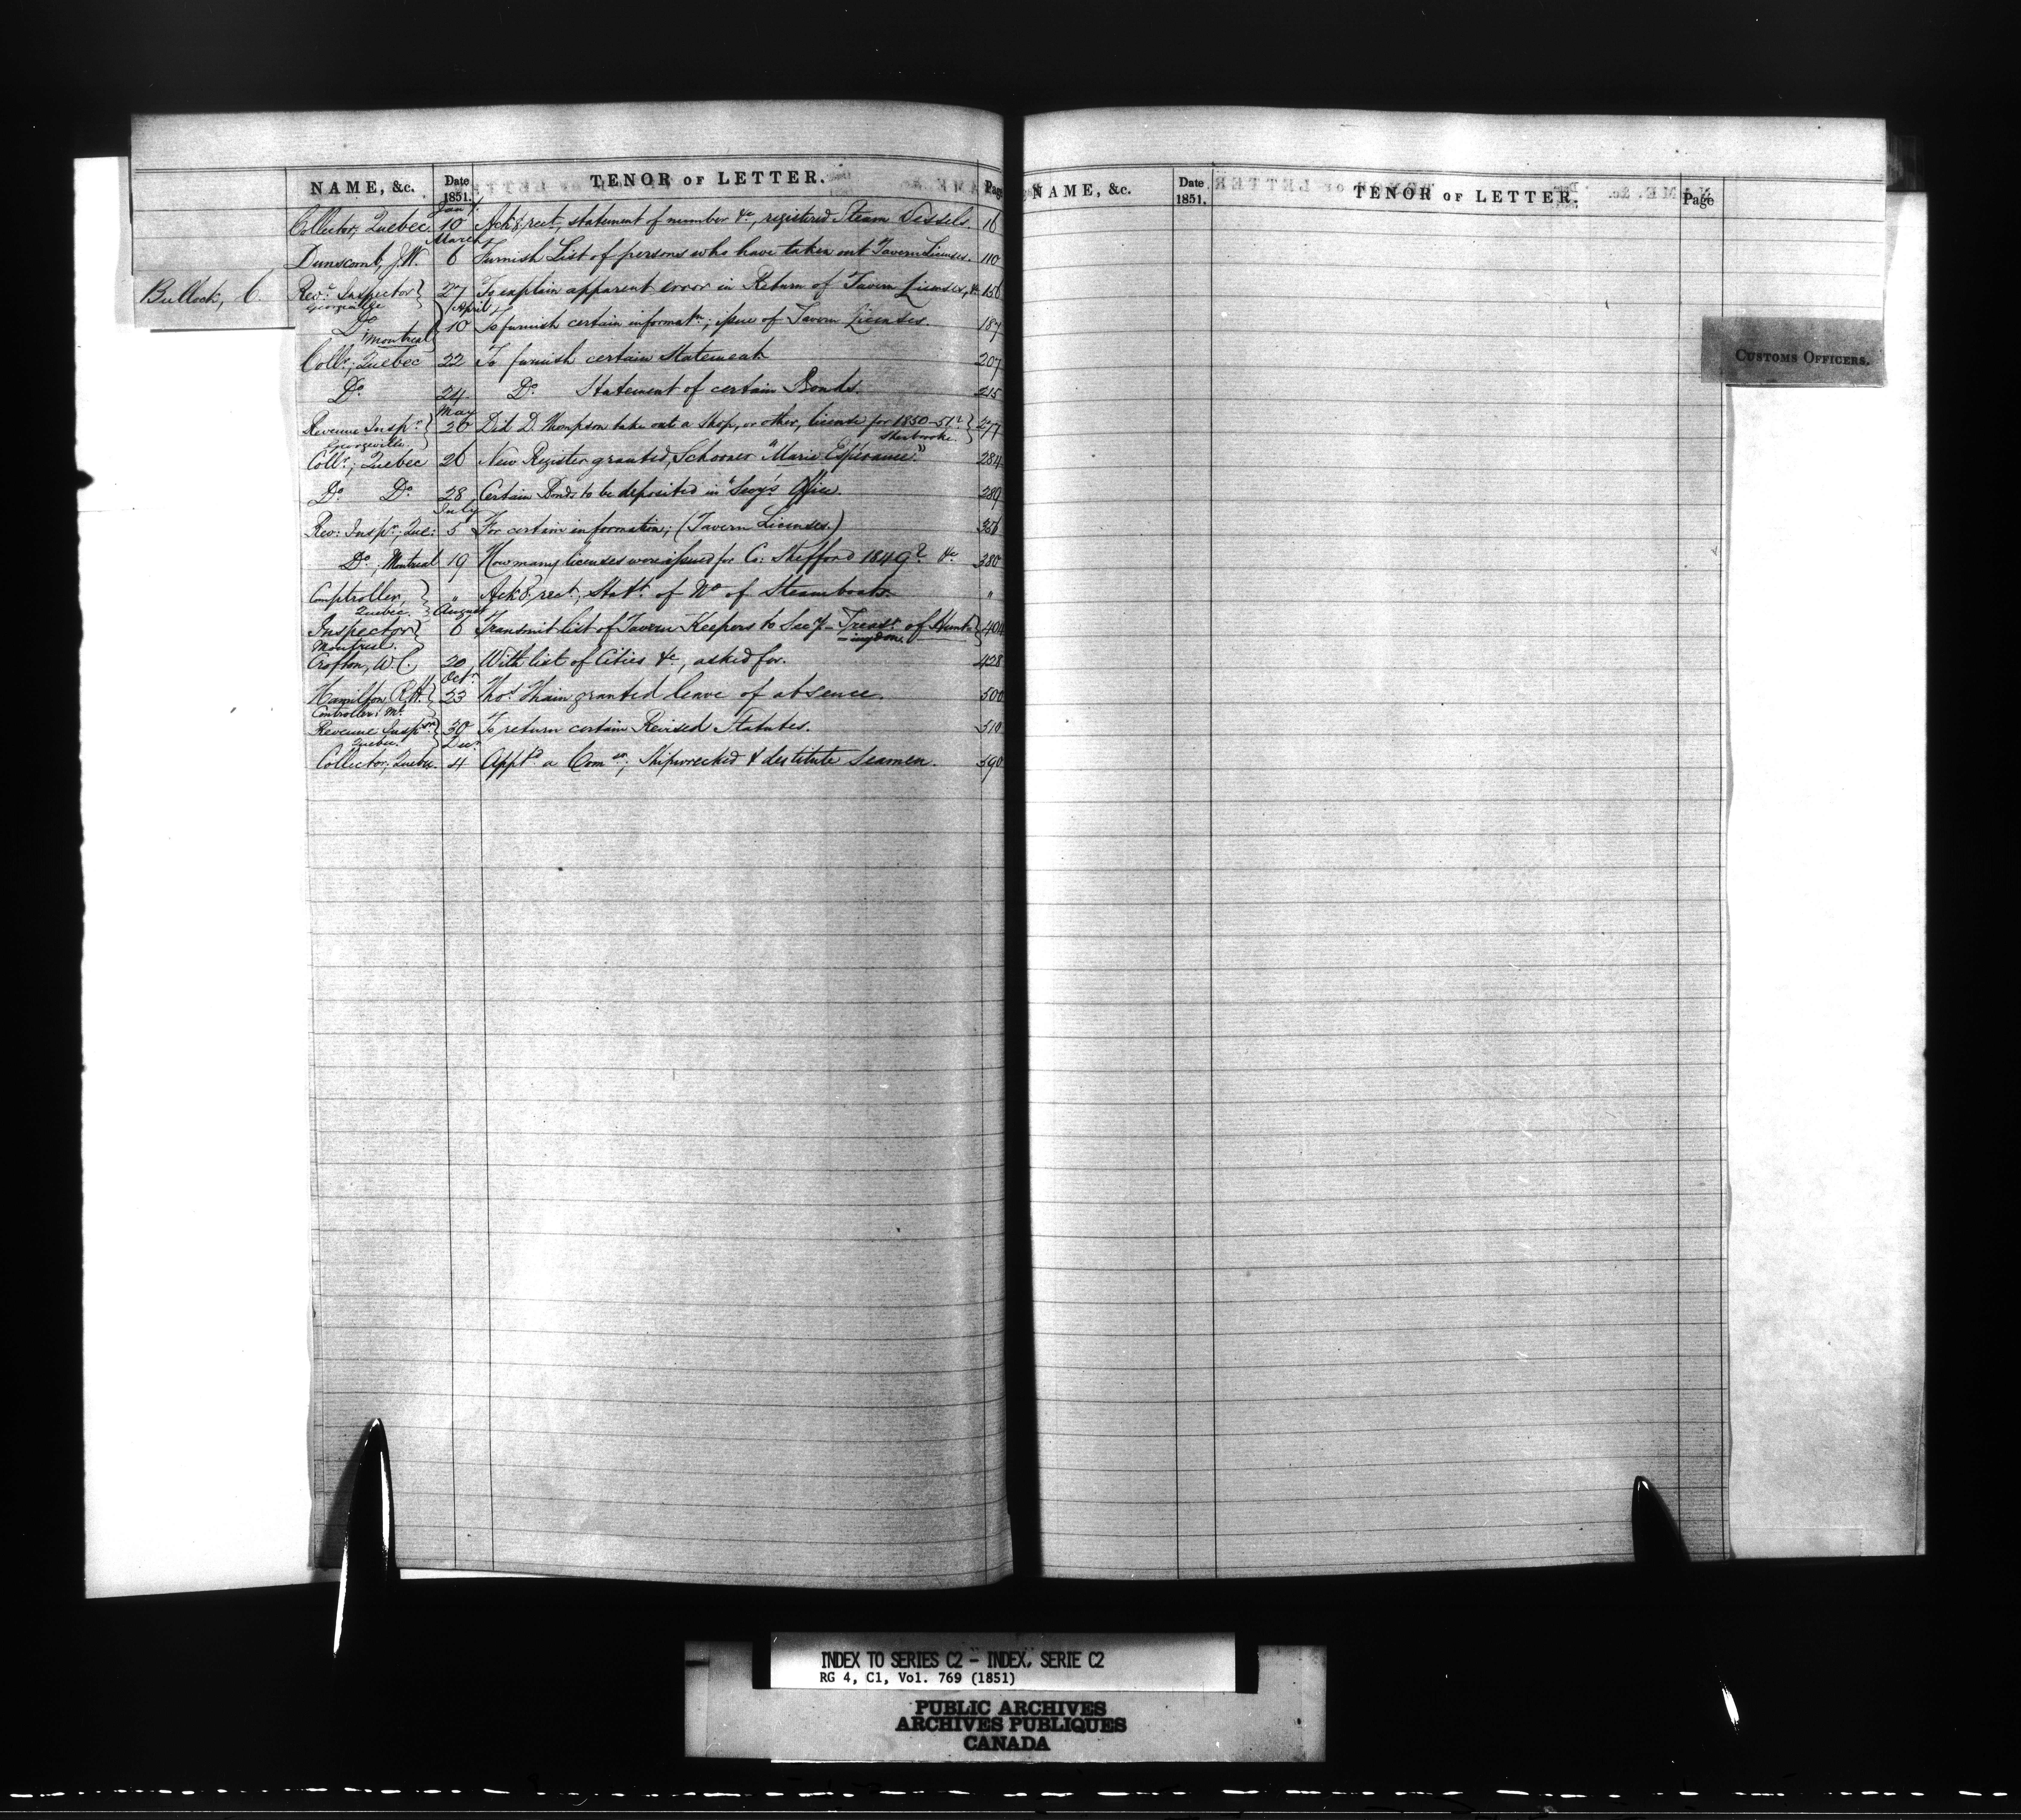 NAME, &c. Date 1851. TENOR OF LETTER. Page
Jany
Collector, Quebec 10 Ackg rect, statement of number &c, registered Steam Vessels. 16
March
Dunscomb, J.W. 6 Furnish List of persons who have taken out Tavern Licenses. 110
Bullock, C. Revue Inspector 27 To explain apparent error in Return of Tavern Licenses, &c 156
Georgeville
April
Do 10 To furnish certain informatn; issue of Tavern Licenses. 187
Montreal
Collr; Quebec 22 To furnish certain Statement. 207
Do 24 Do Statement of certain Bonds. 215
May
Revenue Inspr 20 Did D. Thompson take out a Shop, or other, license for 1850-51? 277
Georgeville. Sherbrooke.
Collr; Quebec 26 New Register granted, Schooner "Marie Espérance." 284
Do Do 28 Certain Bonds to be deposited in Secy's Office. 289
July
Rev: Inspr; Que: 5 For certain information; (Tavern Licenses.) 356
Do, Montreal 19 How many licenses were issued for Co: Shefford 1849? &c 380
Comptroller " Ackg rect, Statt of No of Steamboats. "
Quebec.
August
Inspector 6 Transmit list of Tavern Keepers to Secy-Treasr of Hunt- 404
Montreal. -ingdon.
Crofton, W.C., 20 With list of Cities &c, asked for. 428
Octr
Hamilton, R.H. 23 Thos Thain granted leave of absence. 500
Controller; Ml
Revenue Inspr 30 To return certain Revised Statutes. 510
Quebec.
Decr
Collector; Quebec. 4 Apptd a Comr; Shipwrecked & destitute Seamen. 590
NAME, &c. Date 1851. TENOR OF LETTER. Page
CUSTOMS OFFICERS.
INDEX TO SERIES C2 - INDEX, SERIE C2
RG 4, C1, Vol. 769 (1851)
PUBLIC ARCHIVES
ARCHIVES PUBLIQUES
CANADA